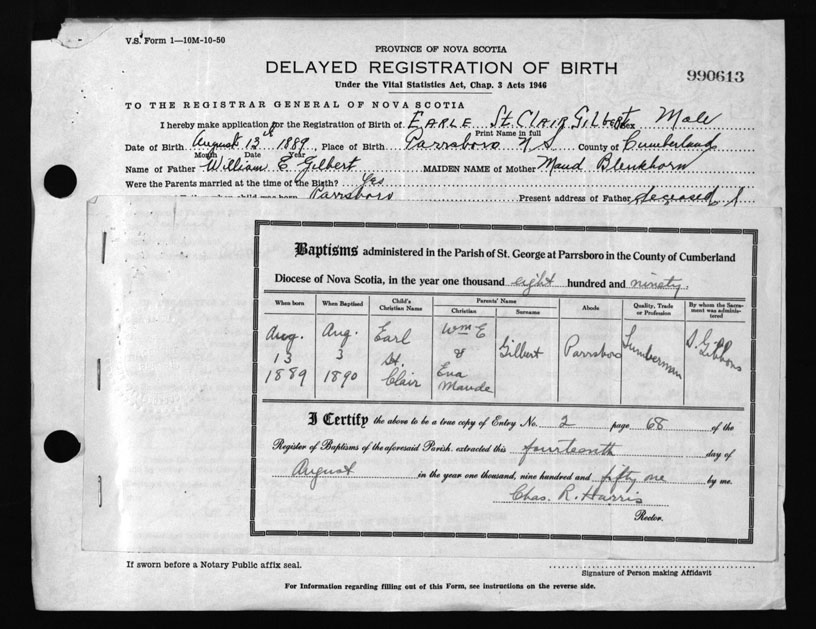 V.S. Form 1—10M-10-50
PROVINCE OF NOVA SCOTIA
DELAYED REGISTRATION OF BIRTH
990613
Under the Vital Statistics Act, Chap. 3 Acts 1946
TO THE REGISTRAR GENERAL OF NOVA SCOTIA
I hereby make application for the Registration of Birth of EARLE ST. CLAIR GILBERT Sex Male
Print Name in full
Date of Birth August 13th 1889, Place of Birth Parrsboro N S County of Cumberland
Month Date Year
Name of Father William E Gilbert MAIDEN NAME of Mother Maud Blenkhorn
Were the Parents married at the time of the Birth? Yes
Parrsboro Present address of Father deceased
Baptisms administered in the Parish of St. George at Parrsboro in the County of Cumberland
Diocese of Nova Scotia, in the year one thousand eight hundred and ninety.
When born When Baptised Child's Christian Name Parents' Name Christian Surname Abode Quality, Trade or Profession By whom the Sacrament was administered
Aug. Aug. Earl Wm E
13 3 St. & Gilbert Parrsboro Lumberman S. Gibbons
1889 1890 Clair Eva Maude
I Certify the above to be a true copy of Entry No. 2 page 68 of the
Register of Baptisms of the aforesaid Parish. extracted this fourteenth day of
August in the year one thousand, nine hundred and fifty one by me.
Chas. R. Harris
Rector.
If sworn before a Notary Public affix seal.
Signature of Person making Affidavit
For Information regarding filling out of this Form, see instructions on the reverse side.